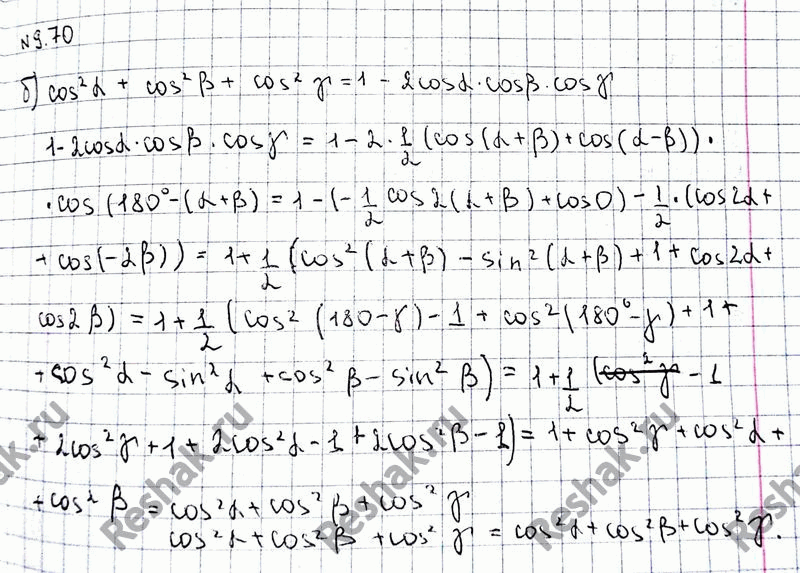 №9.70
б) cos²α + cos²β + cos²γ = 1 - 2cosα·cosβ·cosγ
1-2cosα·cosβ·cosγ = 1-2·1/2(cos(α+β)+cos(α-β))·
·cos(180°-(α+β) = 1-(-1/2 cos2(α+β)+cos0)-1/2·(cos2α+
+cos(-2β)) = 1+1/2(cos²(α+β)-sin²(α+β)+1+cos2α+
cos2β) = 1+1/2(cos²(180-γ)-1+cos²(180°-γ)+1+
+cos²α-sin²α+cos²β-sin²β) = 1+1/2(cos²γ-1
+2cos²γ+1+2cos²α-1+2cos²β-1) = 1+cos²γ+cos²α+
+cos²β = cos²α+cos²β+cos²γ
cos²α+cos²β+cos²γ = cos²α+cos²β+cos²γ.
Reshak.ru
Reshak.ru
Reshak.ru
Reshak.ru